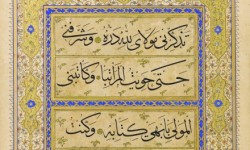 تذكرني مولاي لله دره وشرفني
حتى حويت المراتبا وكاتبني
المولى بأبهى كتابه وكنت